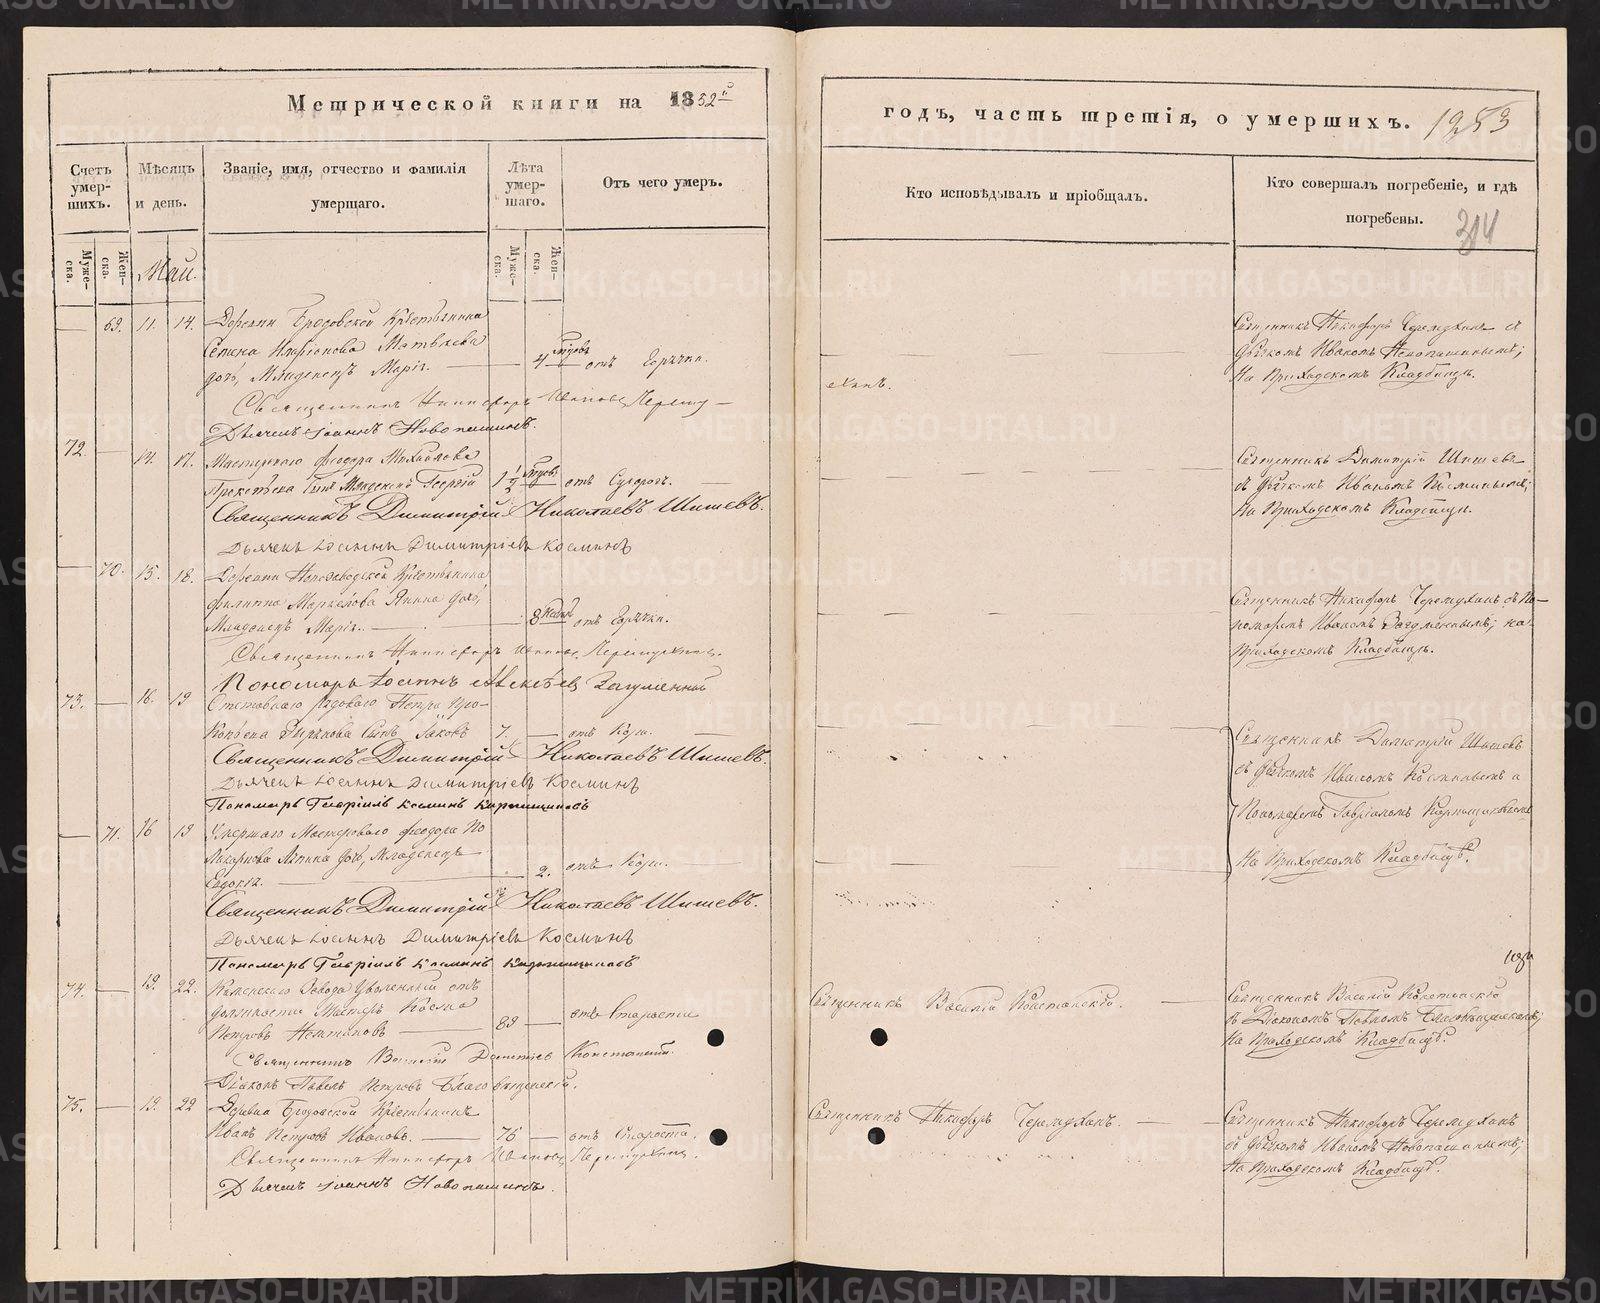 Метрической книги на 1852й
годъ, часть третія, о умершихъ.
1253
Счетъ умершихъ.
Мѣсяцъ и день.
Званіе, имя, отчество и фамилія умершаго.
Лѣта умершаго.
Отъ чего умеръ.
Кто исповѣдывалъ и пріобщалъ.
Кто совершалъ погребеніе, и гдѣ погребены.
314
Муже-ска.
Жен-ска.
Май.
Муже-ска.
Жен-ска.
69. 11. 14. Деревни Бродовской Крестьянина
Семена Иларіонова Матвѣева
дочь, Младенецъ Марія. 4 отъ Горячки.
Священникъ Никифоръ
Дьячекъ Іоаннъ Новопашинъ.
Священникъ Никифоръ Черемухинъ съ
Дьячкомъ Иваномъ Новопашинымъ;
На Приходскомъ Кладбищѣ.
72. 14. 17. Мастероваго Феодора Михайлова
сынъ Младенецъ Георгій 1 1/2 отъ Судорогъ.
Священникъ Димитрій Николаевъ Шишевъ.
Дьячекъ Іоаннъ Димитріевъ Косминъ
Священникъ Димитрій Шишевъ
съ Дьячкомъ Иваномъ Косминымъ;
На Приходскомъ Кладбищѣ.
70. 15. 18. Деревни Новозаводской Крестьянина
Филиппа Маркелова дочь,
Младенецъ Марія. 8 отъ Горячки.
Священникъ Никифоръ Черемухинъ.
Пономарь Іоаннъ Алексѣевъ Загуменной
Священникъ Никифоръ Черемухинъ съ По-
номаремъ Иваномъ Загуменнымъ; на
Приходскомъ Кладбищѣ.
73. 16. 19 Отставнаго рядоваго Петра Про-
сынъ Іаковъ 7. отъ Кори.
Священникъ Димитрій Николаевъ Шишевъ.
Дьячекъ Іоаннъ Димитріевъ Косминъ
Пономарь Гавріилъ Косминъ Кирпищиковъ
Священникъ Димитрій Шишевъ
съ Дьячкомъ Иваномъ Косминымъ и
Пономаремъ Гавріиломъ Кирпищиковымъ
На Приходскомъ Кладбищѣ.
71. 16 19 Умершаго Мастероваго Феодора По
дочь, Младенецъ
Евдокія. 2. отъ Кори.
Священникъ Димитрій Николаевъ Шишевъ.
Дьячекъ Іоаннъ Димитріевъ Косминъ
Пономарь Гавріилъ Косминъ Кирпищиковъ
74. 19. 22. Каменскаго Завода Уволенный отъ
должности Мастеръ Косма
Петровъ 89 отъ Старости
Священникъ Василій
Діаконъ Павелъ Петровъ Благовѣщенскій.
Священникъ Василій
Священникъ Василій
съ Діакономъ Павломъ Благовѣщенскимъ;
На Приходскомъ Кладбищѣ.
75. 19. 22 Деревни Бродовской Крестьянинъ
Иванъ Петровъ Ивановъ. 76 отъ Старости.
Священникъ Никифоръ Черемухинъ.
Дьячекъ Іоаннъ Новопашинъ.
Священникъ Никифоръ Черемухинъ.
Священникъ Никифоръ Черемухинъ
съ Дьячкомъ Иваномъ Новопашинымъ;
На Приходскомъ Кладбищѣ.
METRIKI.GASO-URAL.RU